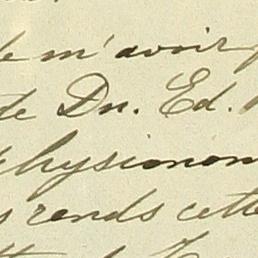 de m'avoir
de Dn. Ed.
physionom
rends cette